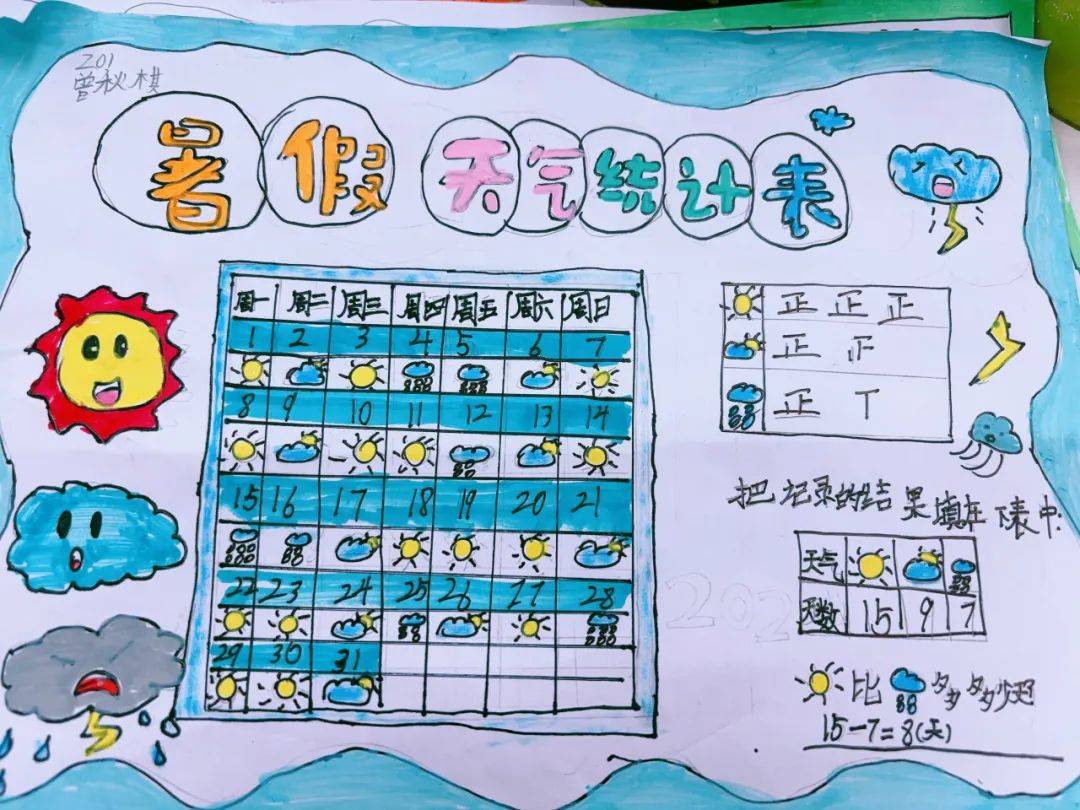 201
曾秋棋
暑假 天气统计表
周一 周二 周三 周四 周五 周六 周日
1 2 3 4 5 6 7
8 9 10 11 12 13 14
15 16 17 18 19 20 21
22 23 24 25 26 27 28
29 30 31
正 正 正
正 正
正 丅
把记录的结果填在下表中:
天气
天数 15 9 7
比 多多少天
15-7=8(天)